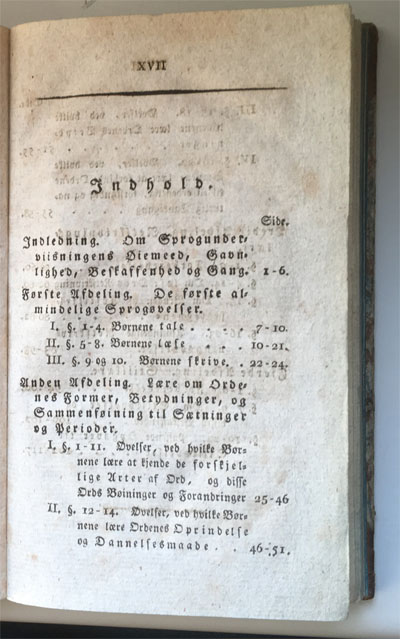 XVII
Indhold.
Side.
Indledning. Om Sprogunder-
viisningens Øiemeed, Gavn-
lighed, Beskaffenhed og Gang. 1-6.
Første Afdeling. De første al-
mindelige Sprogøvelser.
I. §. 1-4. Børnene tale . . . . 7-10.
II. §. 5-8. Børnene læse . . . . 10-21.
III. §. 9 og 10. Børnene skrive. . . 22-24.
Anden Afdeling. Lære om Orde-
nes Former, Betydninger, og
Sammenføining til Sætninger
og Perioder.
I. §. 1-11. Øvelser, ved hvilke Bør-
nene lære at kjende de forskjel-
lige Arter af Ord, og disse
Ords Bøininger og Forandringer 25-46
II. §. 12-14. Øvelser, ved hvilke Bør-
nene lære Ordenes Oprindelse
og Dannelsesmaade . . 46-51.